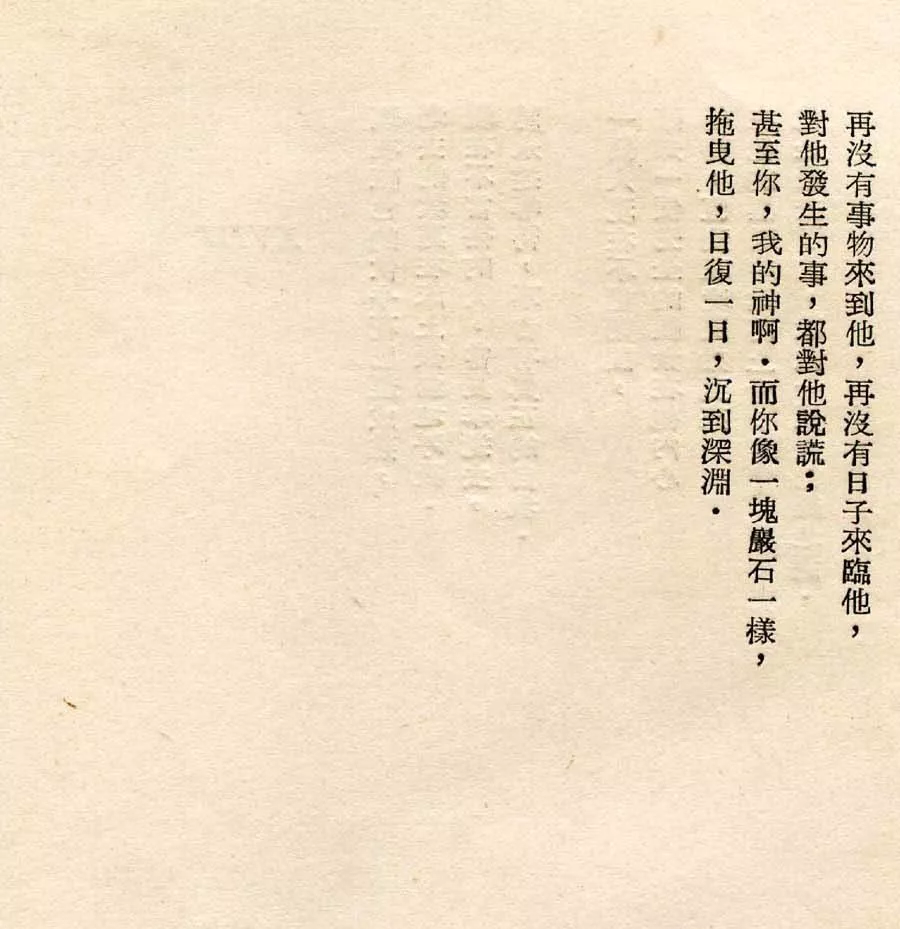 再沒有事物來到他，再沒有日子來臨他，
對他發生的事，都對他說謊；
甚至你，我的神啊．而你像一塊巖石一樣，
拖曳他，日復一日，沉到深淵．